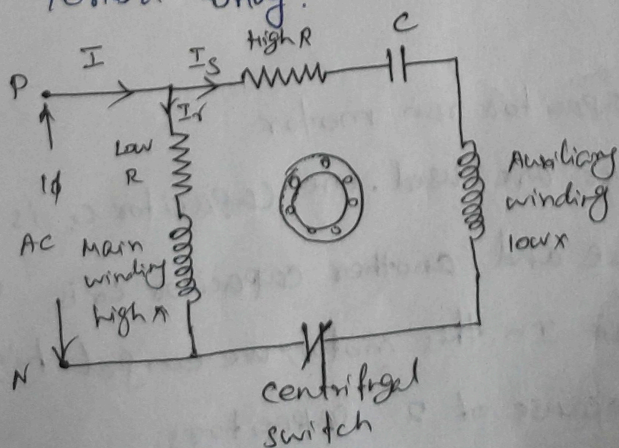 High R
C
I
Is
P
Ir
Low
R
1ϕ
AC
Main
winding
high x
Auxiliary
winding
low x
N
centrifugal
switch